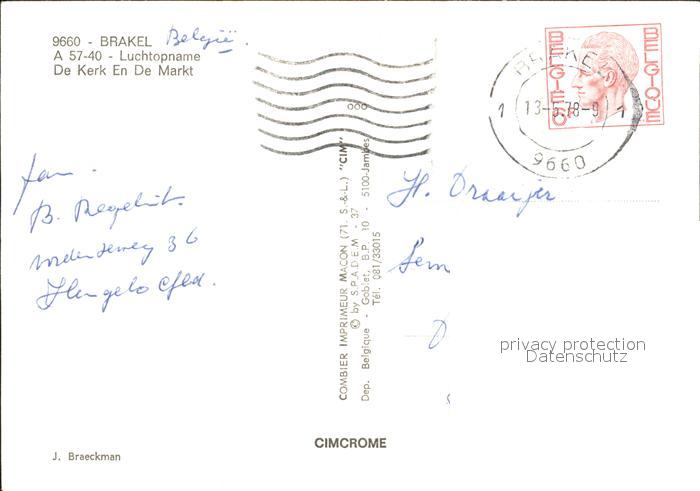 9660 - BRAKEL België.
A 57-40 - Luchtopname
De Kerk En De Markt
Fam.
B.
36
Hengelo Gld.
J. Braeckman
COMBIER IMPRIMEUR MACON (71. S.-&-L.) "CIM"
© by S.P.A.D.E.M. - 37
Dep. Belgique - Goblet, B.P. 10 - 5100-Jambes
Tél. 081/33015
CIMCROME
BRAKEL
1 13-5.78-9 1
9660
BELGIË
BELGIQUE
H. Draaijer
privacy protection
Datenschutz